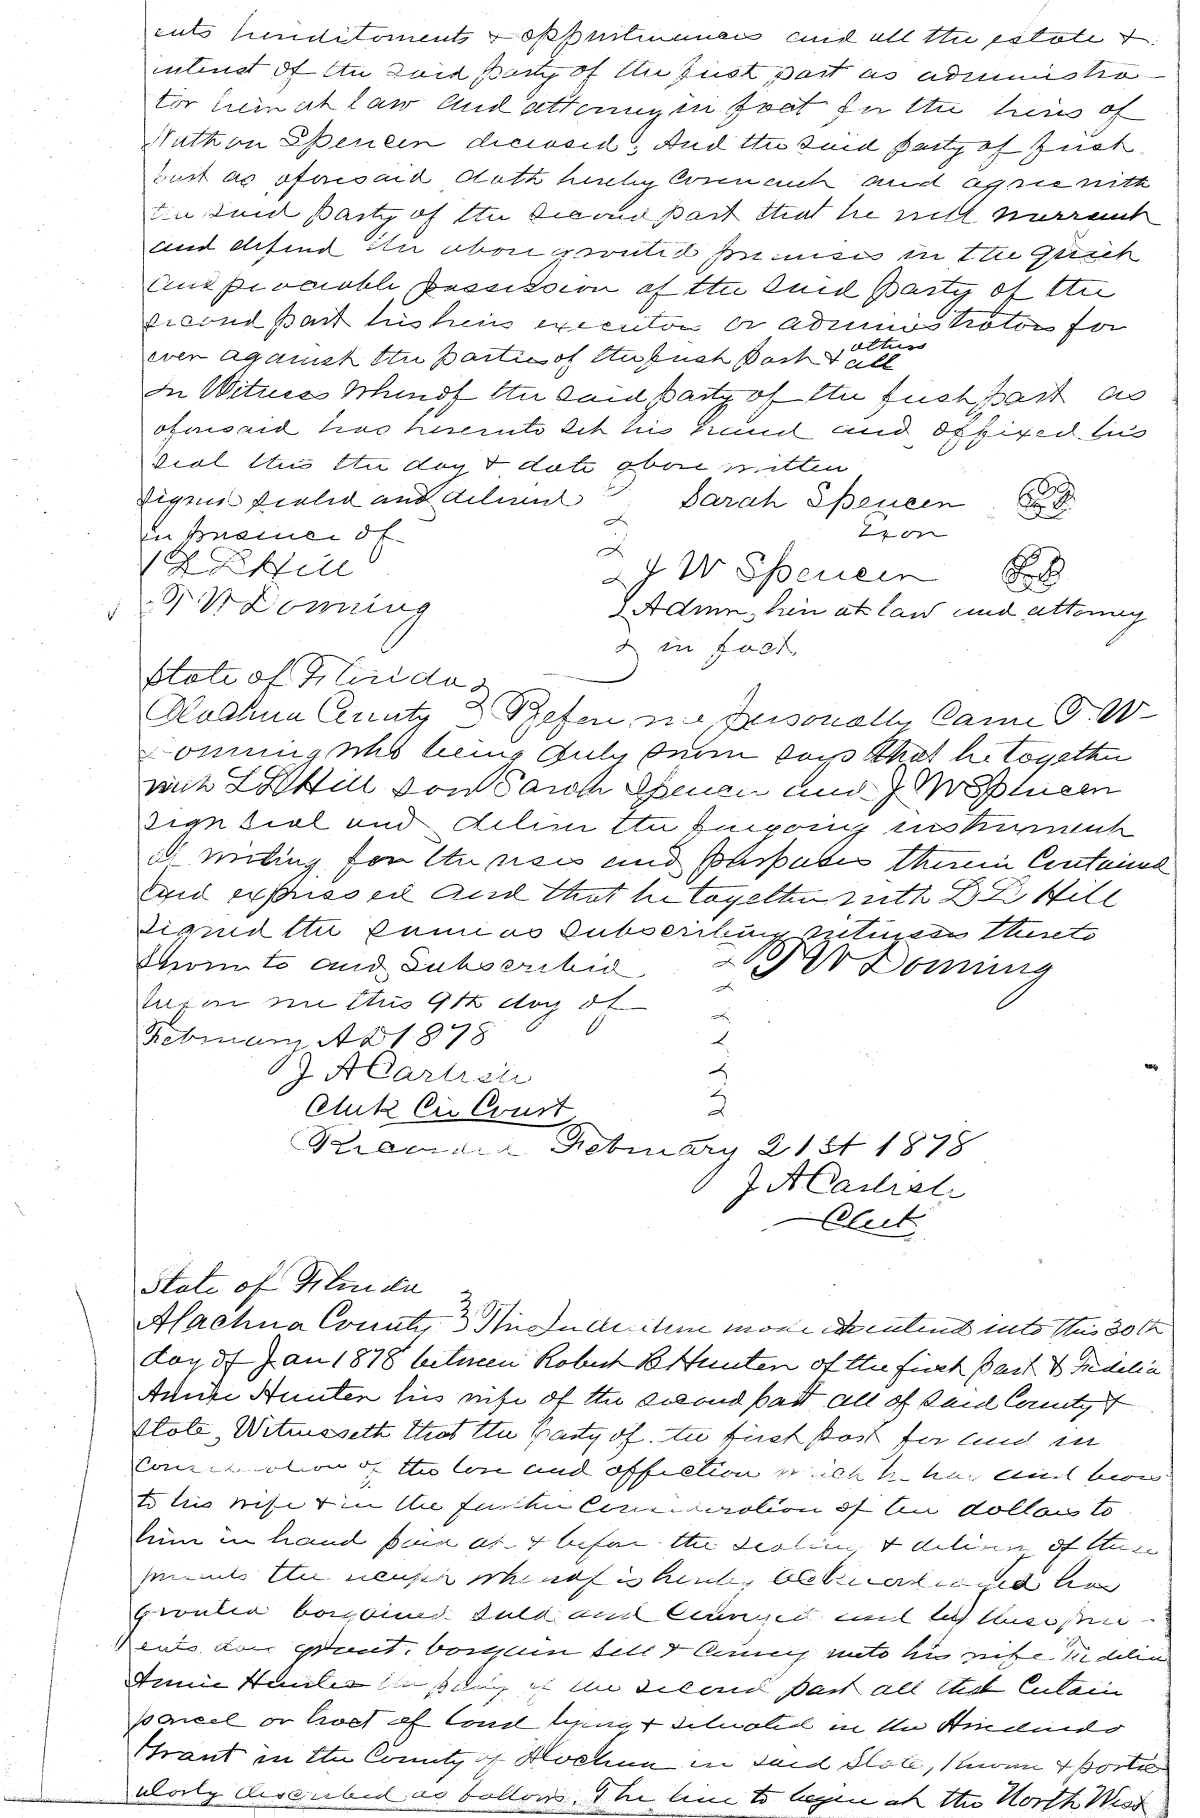 ents heriditoments & appurtinances and all the estate &
interest of the said party of the first part as administra-
tor heir at law and attorney in fact for the heirs of
Nathan Spencer diceased; And the said party of first
part as aforesaid doth hereby Covenant and agree with
the said party of the second part that he will warrant
and defend the above granted premises in the quiet
and peaceable possession of the said party of the
second part his heirs executors or administrators for
ever against the parties of the first part & all others
In Witness Whereof the said party of the first part as
aforesaid has hereunto set his hand and affixed his
seal this the day & date above written
signed sealed and delivered Sarah Spencer
in presence of Exor
L D Hill J W Spencer
T W Downing Admr, heir at law and attorney
in fact,
State of Florida
Alachua County Before me personally Came T. W-
Downing who being duly sworn says that he together
with L D Hill saw Sarah Spencer and J W Spencer
sign seal and deliver the foregoing instrument
of writing for the uses and purposes therein Contained
and expressed and that he together with L D Hill
signed the same as subscribing witnesses thereto
Sworn to and Subscribed T W Downing
before me this 9th day of
February AD 1878
J A Carlisle
Clerk Cir Court
Recorded February 21st 1878
J A Carlisle
Clerk
State of Florida
Alachua County This Indenture made & entered into this 30th
day of Jan 1878 between Robert B Hunter of the first part & Fidelia
Annie Hunter his wife of the second part all of said County &
State, Witnesseth that the party of the first part for and in
Consideration of the love and affection which he has and bears
to his wife & in the further Consideration of ten dollars to
him in hand paid at & before the sealing & delivery of these
presents the receipt whereof is hereby acknowledged has
granted bargained sold and Conveyed and by these pres-
ents does grant, bargain sell & Convey unto his wife Fidelia
Annie Hunter the party of the second part all that Certain
parcel or tract of land lying & situated in the Arredondo
Grant in the County of Alachua in said State, Known & partic
ularly described as follows. The line to begin at the North West